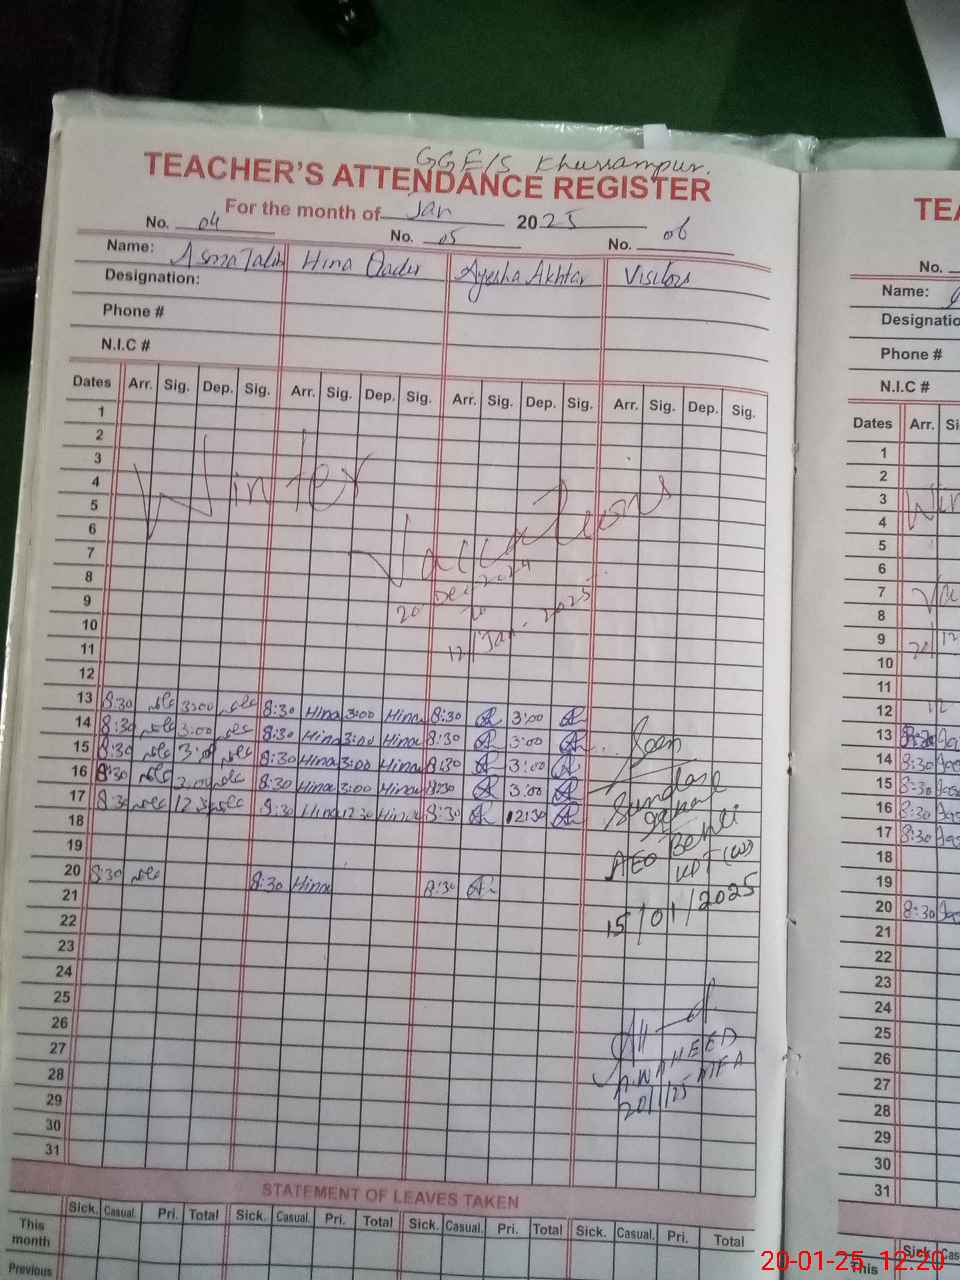 GGE/S Khurrampur.
TEACHER'S ATTENDANCE REGISTER
For the month of Jan 2025
No. 04 No. 05 No. 06
Name: Asma Talib Hina Qadir Ayesha Akhtar Visitors
Designation:
Phone #
N.I.C #
Dates Arr. Sig. Dep. Sig. Arr. Sig. Dep. Sig. Arr. Sig. Dep. Sig. Arr. Sig. Dep. Sig.
1
2
3
4
5
6
7
8
9
10
11
12
Winter
Vaccations
20 Dec 2024
to
12/Jan. 2025
13 8:30 3:00 8:30 Hina 3:00 Hina 8:30 3:00
14 8:30 3:00 8:30 Hina 3:00 Hina 8:30 3:00
15 8:30 3:00 8:30 Hina 3:00 Hina 8:30 3:00
16 8:30 8:30 Hina 3:00 Hina 8:30 3:00
17 8:30 12:30 8:30 Hina 12:30 Hina 8:30 12:30
18
19
20 8:30 8:30 Hina 8:30
21
22
23
24
25
26
27
28
29
30
31
AEO
15/01/2025
A.WAHEED
20/1/25 MEA
STATEMENT OF LEAVES TAKEN
Sick. Casual. Pri. Total Sick. Casual. Pri. Total Sick. Casual. Pri. Total Sick. Casual. Pri. Total
This month
Previous
TEA
No.
Name:
Designatio
Phone #
N.I.C #
Dates Arr. Si
1
2
3
4
5
6
7
8
9
10
11
12
13 8:30
14 8:30
15 8:30
16 8:30
17 8:30
18
19
20 8:30
21
22
23
24
25
26
27
28
29
30
31
Sick. Cas
This
20-01-25 12:20